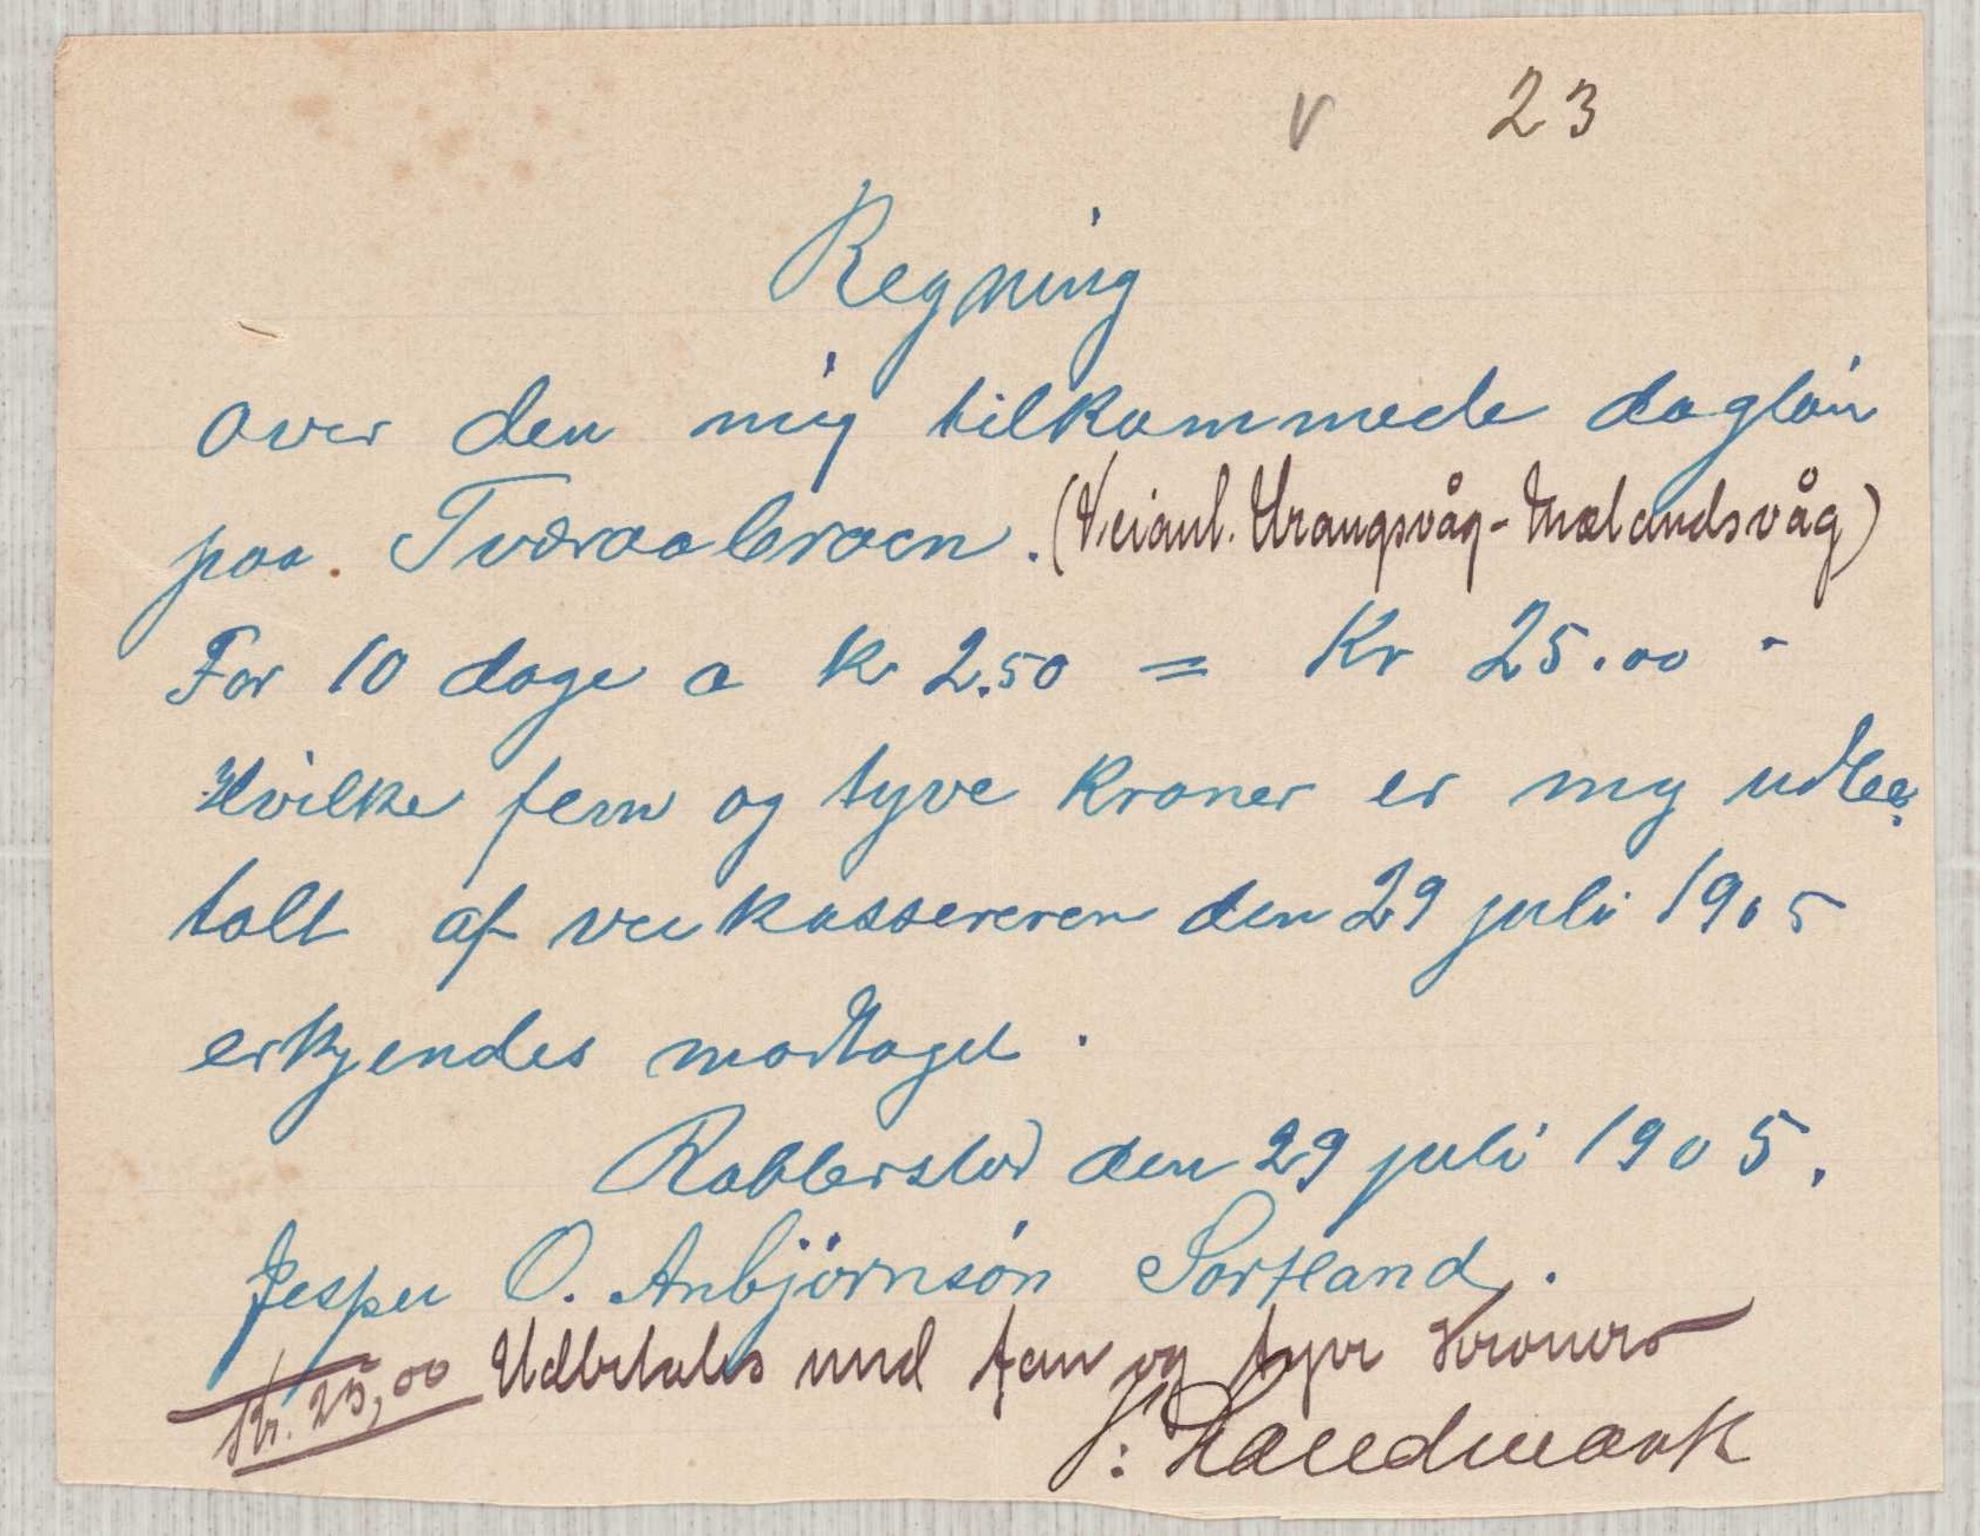 V 23
Regning
over den mig tilkommede dagløn
paa. Tværaabroen. (Veianl. Urangsvåg-Mælandsvåg)
For 10 dage a kr 2.50 = Kr 25.00 -
Hvilke fem og tyve kroner er mig udbe-
talt af veikassereren den 29 juli 1905
erkjendes modtaget.
Rabberstad den 29 juli 1905.
Jesper O. Anbjörnsön Sortland.
Kr. 25,00 Udbetales med fem og tyve Kroner
J: Landmark